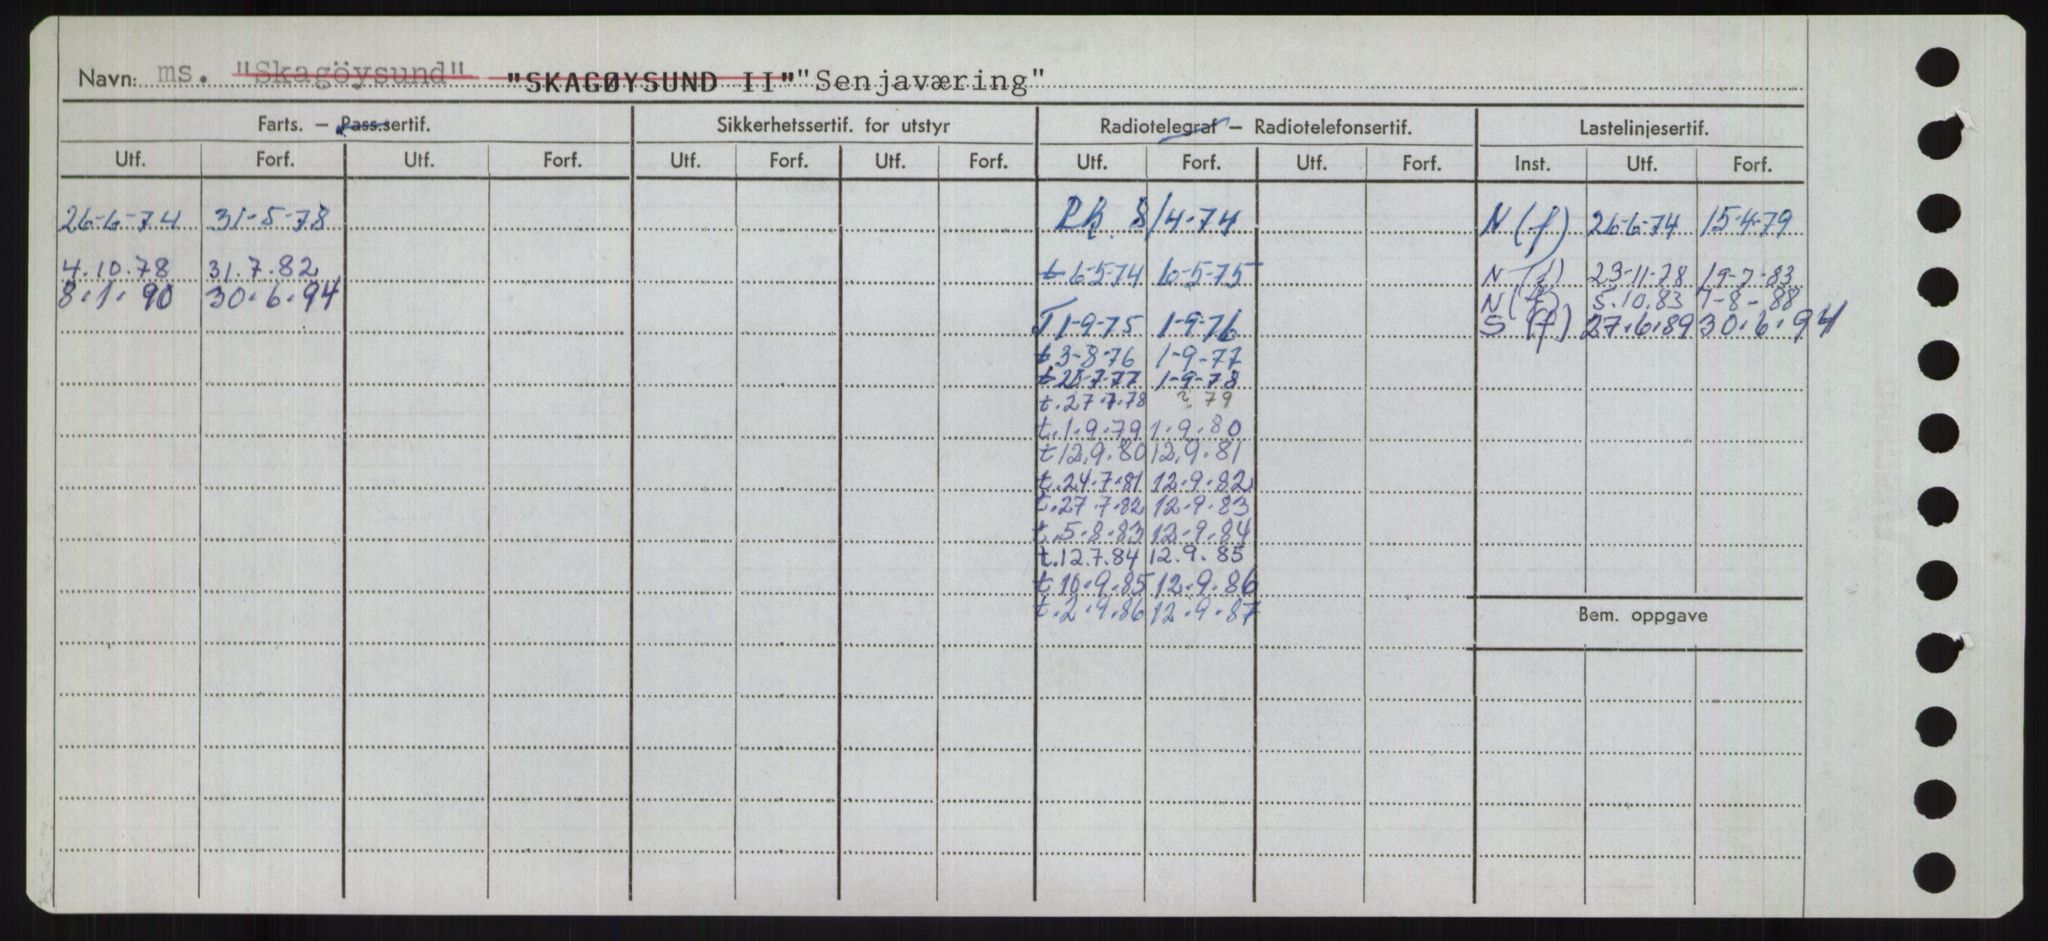 Navn: ms. "Skagöysund" "SKAGØYSUND II" "Senjaværing"
Farts. — Pass.sertif. Sikkerhetssertif. for utstyr Radiotelegraf — Radiotelefonsertif. Lastelinjesertif.
Utf. Forf. Utf. Forf. Utf. Forf. Utf. Forf. Utf. Forf. Utf. Forf. Inst. Utf. Forf.
26-6-74 31-5-78 8/4-74 N (f) 26-6-74 15-4-79
4.10.78 31.7.82 t 6-5-74 10-5-75 N (f) 23-11-78 19-7-83
8.1.90 30.6.94 N (f) 5.10.83 1-8-88
T 1-9-75 1-9-76 S (f) 27.6.89 30.6.94
t 3-8-76 1-9-77
t 28-7-77 1-9-78
t.27.7.78 ? 79
t.1.9.79 1.9.80
t 12.9.80 12.9.81
t.24.7.81 12.9.82
t.27.7.82 12.9.83
t.5.8.83 12.9.84
t.12.7.84 12.9.85
t 10.9.85 12.9.86
t.2.9.86 12.9.87
Bem. oppgave